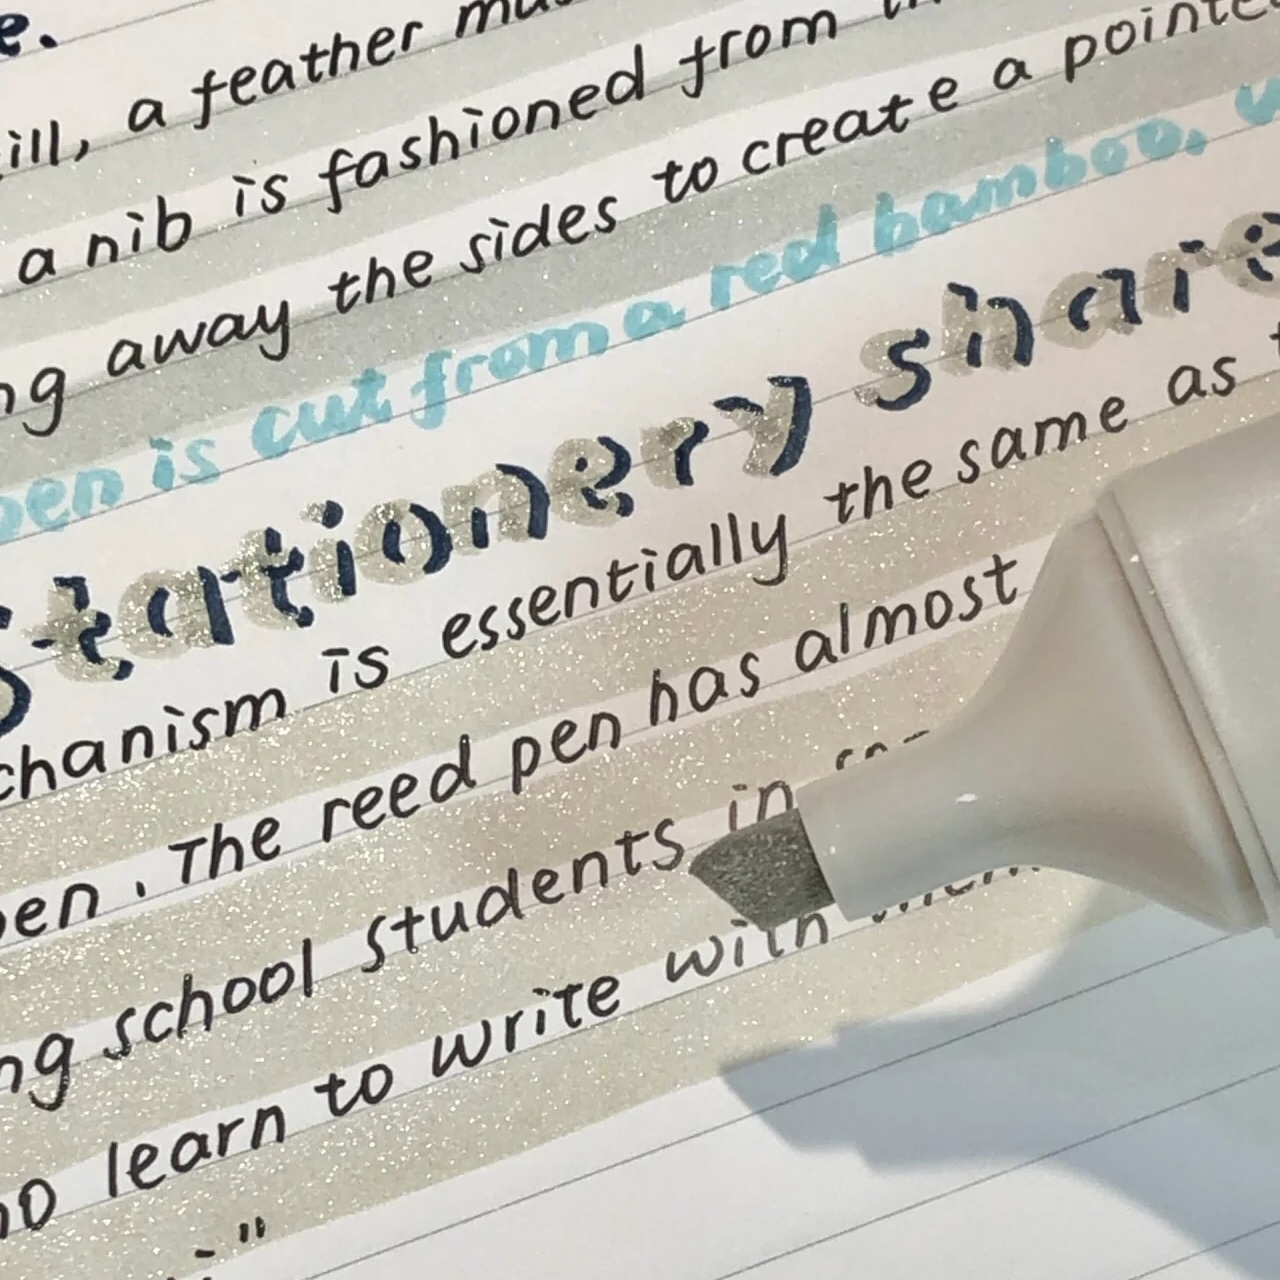 e.
ill, a feather
a nib is fashioned from
ng away the sides to create a pointe
pen is cut from a red bamboo.
stationery share
chanism is essentially the same as
pen. The reed pen has almost
ng school students in
learn to write with
"